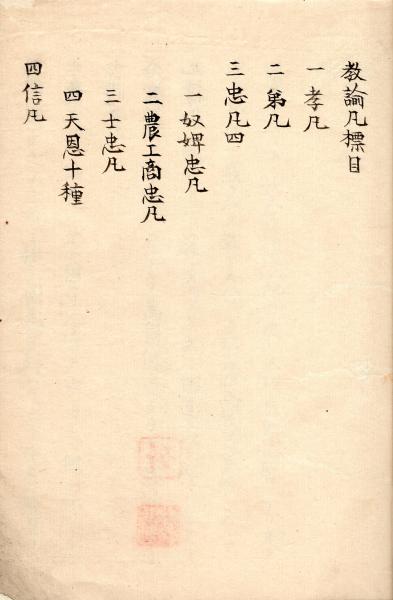 教諭凡標目
一 孝凡
二 第凡
三 忠凡四
一 奴婢忠凡
二 農工商忠凡
三 士忠凡
四 天恩十種
四 信凡